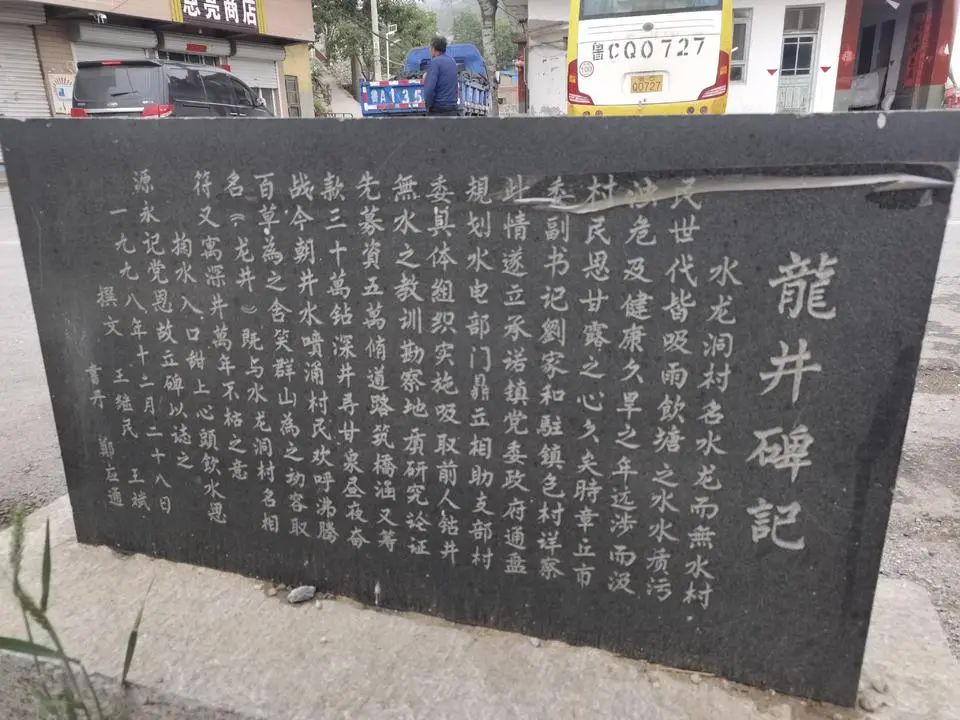 思亮商店
鲁A135
鲁CQ0727
100
Q0727
龍井碑記
水龙洞村名水龙而無水村
民世代皆吸雨飲塘之水水质污
浊危及健康久旱之年远涉而汲
村民思甘露之心久矣時章丘市
委副书记劉家和駐鎮包村详察
此情遂立承诺镇党委政府通盘
規划水电部门鼎立相助支部村
委具体组织实施吸取前人钻井
無水之教训勘察地质研究论证
先募資五萬俏道路筑橋涵又筹
款三十萬钻深井寻甘泉昼夜奋
战今朝井水喷涌村民欢呼沸腾
百草為之含笑群山為之动容取
名《龙井》既与水龙洞村名相
符又寓深井萬年不枯之意
掬水入口甜上心頭飲水思
源永记党恩故立碑以誌之
一九九八年十二月二十八日
撰文 王继民 王斌
書丹 鄭应通